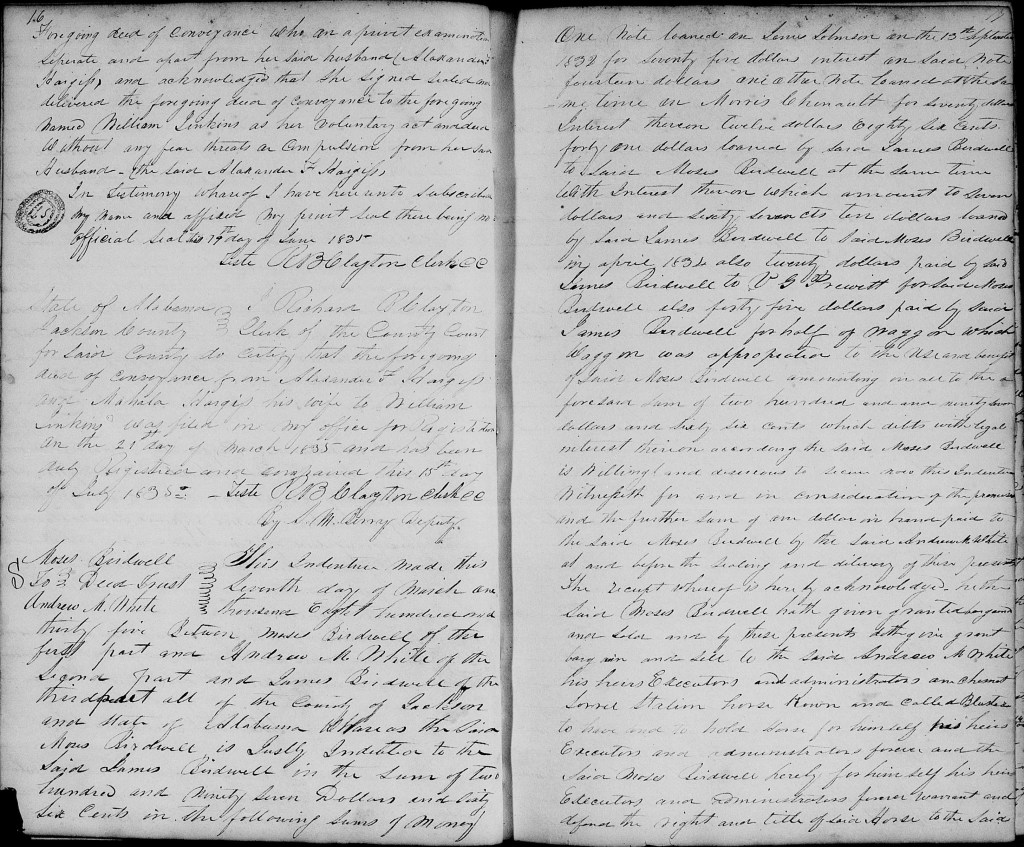 16
Foregoing deed of conveyance who on a privit examination
Seperate and apart from her said husband (Alaxander
Hargiss) and acknowledged that she signed sealed and
delivered the foregoing deed of conveyance to the foregoing
Named William Jinkins as her voluntary act and deed
Without any fear threats or Compulsion from her said
Husband – the said Alaxander F Hargiss,
In Testimony whareof I have hereunto subscribed
My name and affixed my privit Seal there being no
official Seal this 19th day of June 1835
Teste R B Clayton Clerk CC
State of Alabama I Richard B Clayton
Jackson County Clerk of the County Court
for said County do certify that the foregoing
deed of conveyance from Alaxander F Hargiss
and Mahala Hargis his wife to William
Jinkins was filed in my office for Registration
on the 21st day of march 1835 and has been
duly Registered and compaired this 15th day
of July 1835 – Teste R B Clayton Clerk CC
By M. Berry Deputy
Moses Birdwell
To Deed Trust
Andrew M. White
This Indenture made this
Seventh day of March one
thousand Eight hundred and
thirty five Between Moses Birdwell of the
first part and Andrew M White of the
Second part and James Birdwell of the
third part all of the County of Jackson
and state of Alabama Whareas the said
Moses Birdwell is Justly Indebted to the
Said James Birdwell in the sum of two
hundred and Ninety Seven Dollars and Sixty
Six Cents in the following Sums of Money
17
One Note loaned on Lewis Johnson on the 13th September
1832 for Seventy five dollars interest on said Note
fourteen dollars one other Note loaned at the Sa
me time on Morris Chenault for Seventy dollars
Interest thereon twelve dollars Eighty Six Cents
forty one dollars loaned by said James Birdwell
to Said Moses Birdwell at the same time
With Interest thereon which amount to Seven
dollars and Sixty Seven cts ten dollars loaned
by Said James Birdwell to Said Moses Birdwell
in april 1834 also twenty dollars paid by said
James Birdwell to Prewitt for said Moses
Birdwell also forty five dollars paid by said
James Birdwell for half of waggon which
Waggon was appropiated to the use and benefit
of Said Moses Birdwell amounting in all to the a
foresaid sum of two hundred and and ninety seven
dollars and sixty six cents which debts with legal
interest thereon according the said Moses Birdwell
is Willing and desireous to secure now this Indenture
Witnesseth for and in consideration of the premises
and the further Sum of one dollar in hand paid to
the Said Moses Birdwell by the said Andrew M. White
at and before the sealing and delivery of these presents
The receipt whereof is hereby acknowledged he the
Said Moses Birdwell hath given granted bargained
and sold and by these presents doth give grant
bargain and sell to the said Andrew M White
his heirs Executors and administrators one chesnut
Sorrel Stalion horse Known and called
to have and to hold Same for himself his heirs
Executors and administrators forever and the
Said Moses Birdwell hereby for him self his heirs
Executors and administrators forever warrant and
defend the right and title of said Horse to the Said